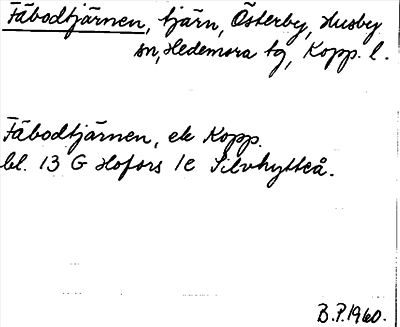 Fäbodtjärnen, tjärn, Österby, Husby
sn, Hedemora tg, Kopp. l.
Fäbodtjärnen, ek Kopp.
bl. 13 G Hofors 1c Silvhytteå.
B.P. 1960.